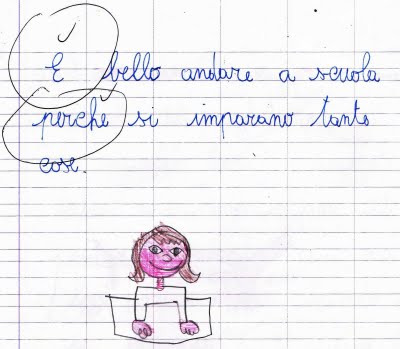 E bello andare a scuola
perche si imparano tante
cose.